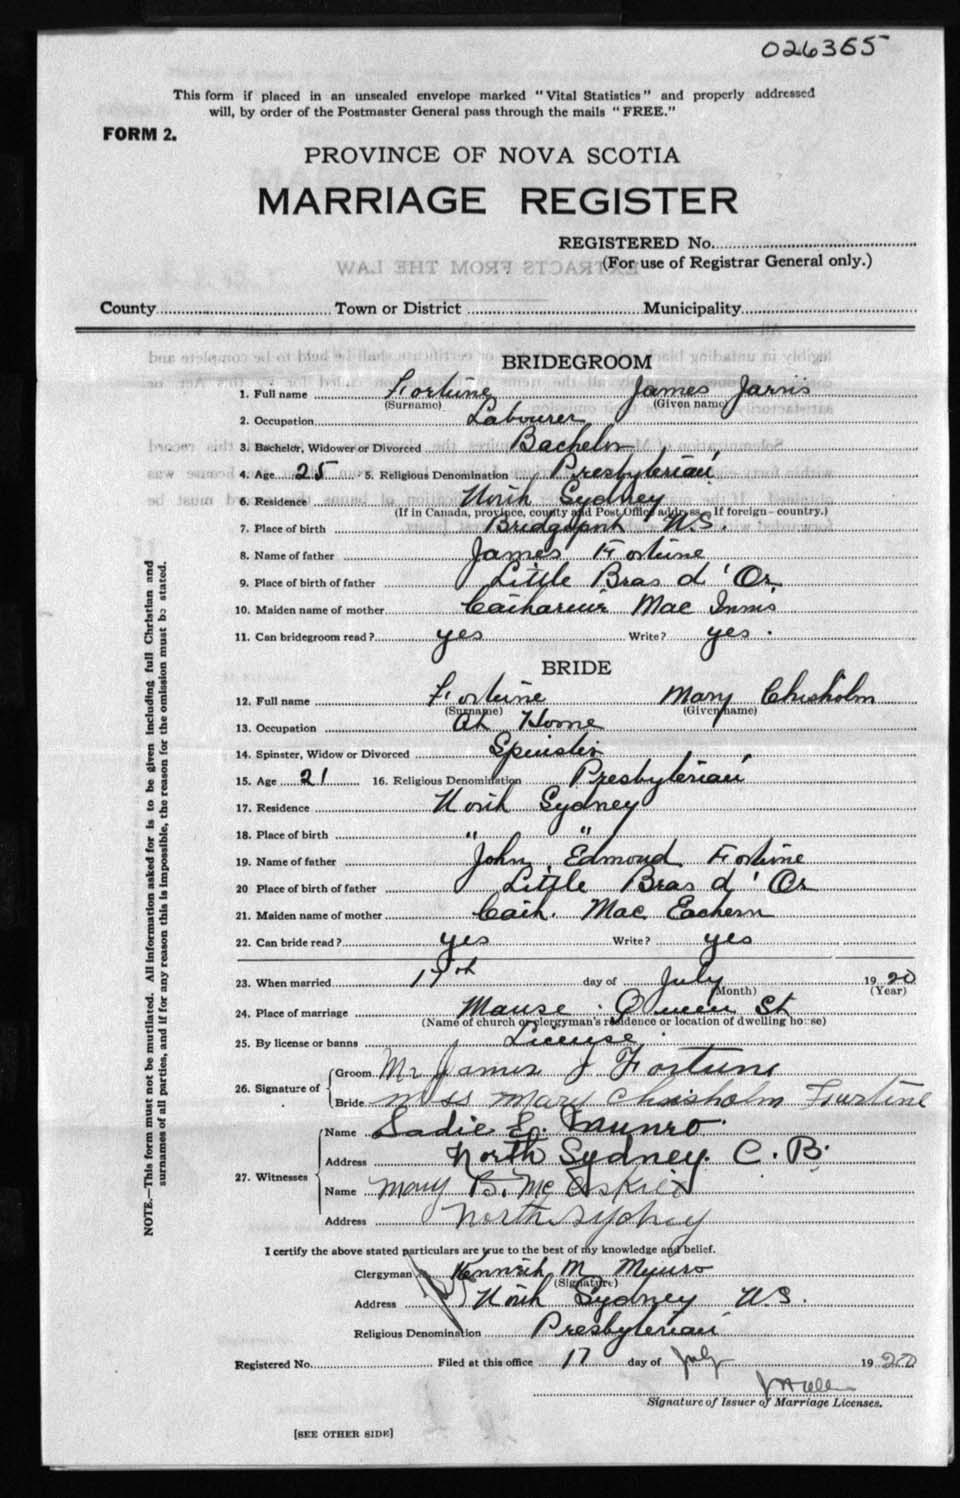 026365
This form if placed in an unsealed envelope marked "Vital Statistics" and properly addressed
will, by order of the Postmaster General pass through the mails "FREE."
FORM 2.
PROVINCE OF NOVA SCOTIA
MARRIAGE REGISTER
REGISTERED No.
(For use of Registrar General only.)
EXTRACTS FROM THE LAW
County Town or District Municipality
BRIDEGROOM
1. Full name Fortune James Jarvis
(Surname) (Given name)
2. Occupation Labourer
3. Bachelor, Widower or Divorced Bachelor
4. Age 25 5. Religious Denomination Presbyterian
6. Residence North Sydney
(If in Canada, province, county and Post Office address. If foreign—country.)
7. Place of birth Bridgeport N.S.
8. Name of father James Fortune
9. Place of birth of father Little Bras d'Or
10. Maiden name of mother Catharine Mac Innis
11. Can bridegroom read? yes Write? yes.
BRIDE
12. Full name Fortune Mary Chisholm
(Surname) (Given name)
13. Occupation At Home
14. Spinster, Widow or Divorced Spinster
15. Age 21 16. Religious Denomination Presbyterian
17. Residence North Sydney
18. Place of birth " "
19. Name of father John Edmond Fortune
20 Place of birth of father Little Bras d'Or
21. Maiden name of mother Cath. Mac Eachern
22. Can bride read? yes Write? yes
23. When married 17th day of July 1920
(Month) (Year)
24. Place of marriage Manse Queen St
(Name of church or clergyman's residence or location of dwelling house)
25. By license or banns License
26. Signature of Groom Mr James J Fortune
Bride Miss Mary Chisholm Fourtine
27. Witnesses Name Sadie E. Munro.
Address North Sydney. C. B.
Name Mary B. Mc
Address North Sydney
I certify the above stated particulars are true to the best of my knowledge and belief.
Clergyman Kenneth M Munro
(Signature)
Address North Sydney N.S.
Religious Denomination Presbyterian
Registered No. Filed at this office 17 day of July 1920
Signature of Issuer of Marriage Licenses.
[SEE OTHER SIDE]
NOTE.—This form must not be mutilated. All information asked for is to be given including full Christian and
surnames of all parties, and if for any reason this is impossible, the reason for the omission must be stated.